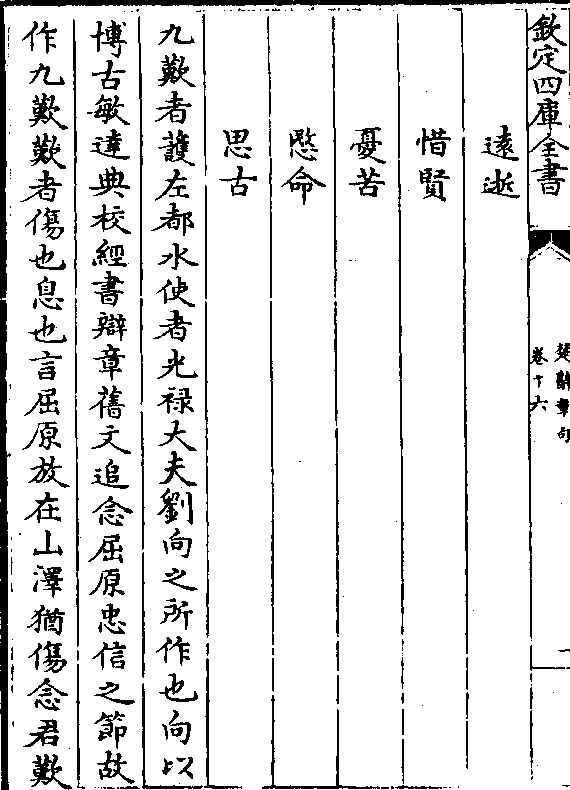 欽定四庫全書
楚辭章句
卷十六
一
遠逝
惜賢
憂苦
愍命
思古
九歎者護左都水使者光禄大夫劉向之所作也向以
博古敏達典校經書辯章舊文追念屈原忠信之節故
作九歎歎者傷也息也言屈原放在山澤猶傷念君歎